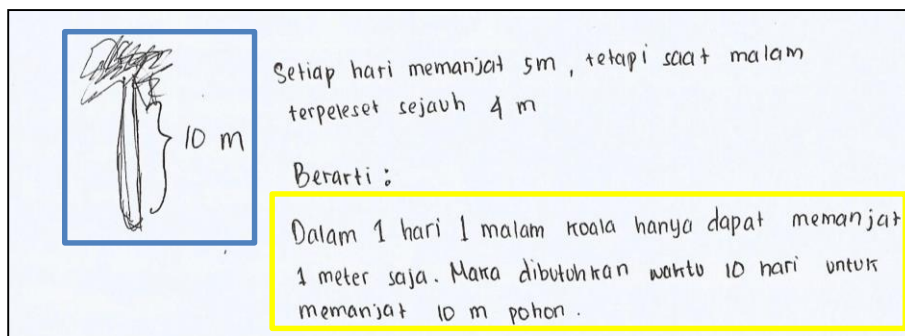 10 m
Setiap hari memanjat 5m, tetapi saat malam
terpeleset sejauh 4 m
Berarti :
Dalam 1 hari 1 malam koala hanya dapat memanjat
1 meter saja. Maka dibutuhkan waktu 10 hari untuk
memanjat 10 m pohon.